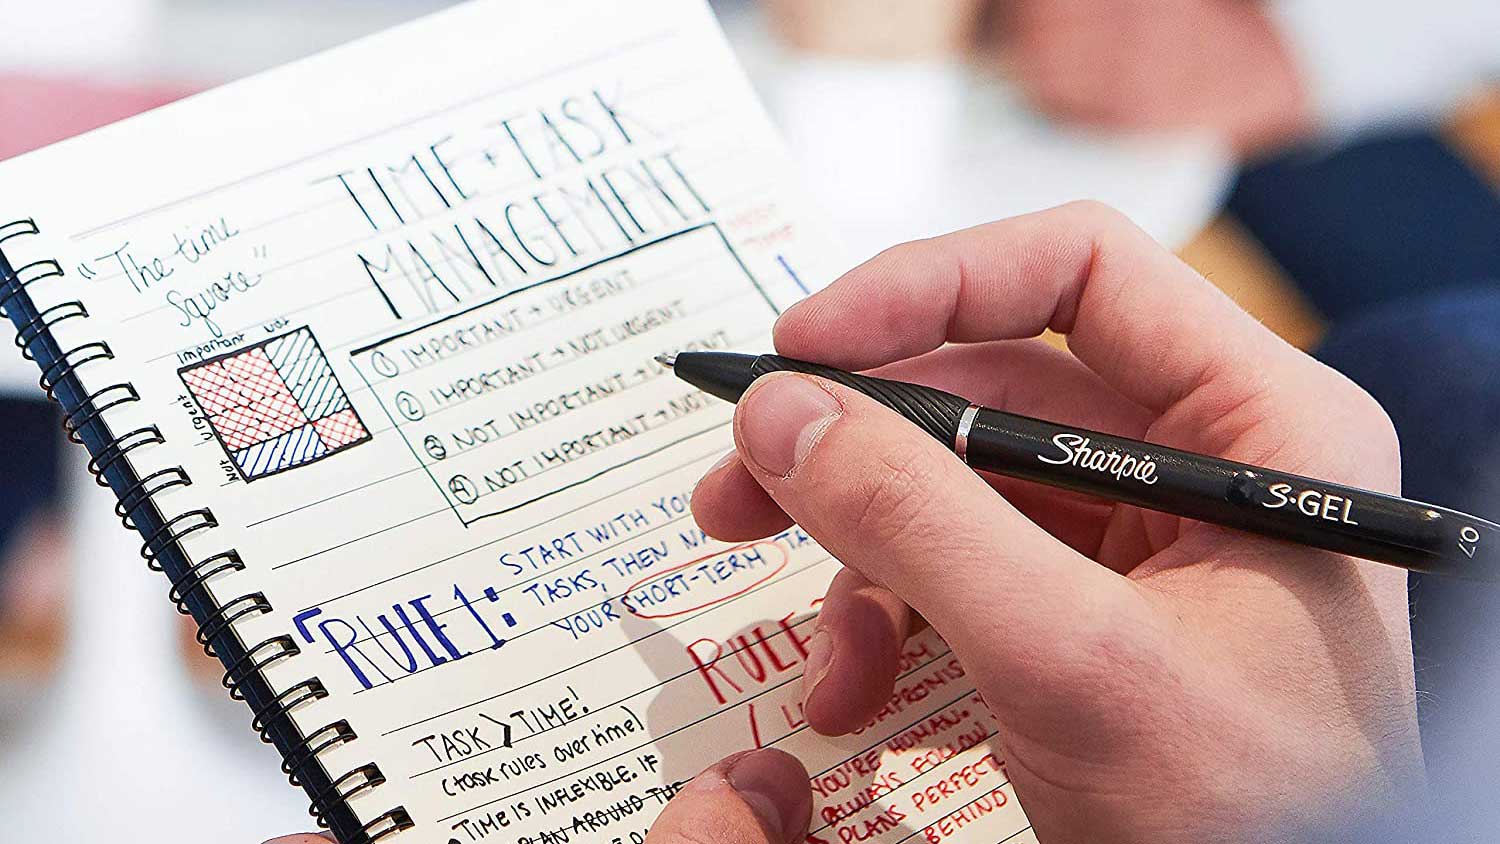 TIME + TASK
MANAGEMENT
"The time
square"
Important Not
Urgent
Not
① IMPORTANT + URGENT
② IMPORTANT → NOT URGENT
③ NOT IMPORTANT → URGENT
④ NOT IMPORTANT → NOT
RULE 1:
START WITH YOU
TASKS, THEN
YOUR SHORT-TERM
RULE
TASK > TIME!
(task rules over time)
TIME IS INFLEXIBLE. IF
PLAN AROUND THE
YOU'RE HUMAN.
ALWAYS FOLLOW
PLANS PERFECTL
BEHIND
Sharpie S·GEL 0.7